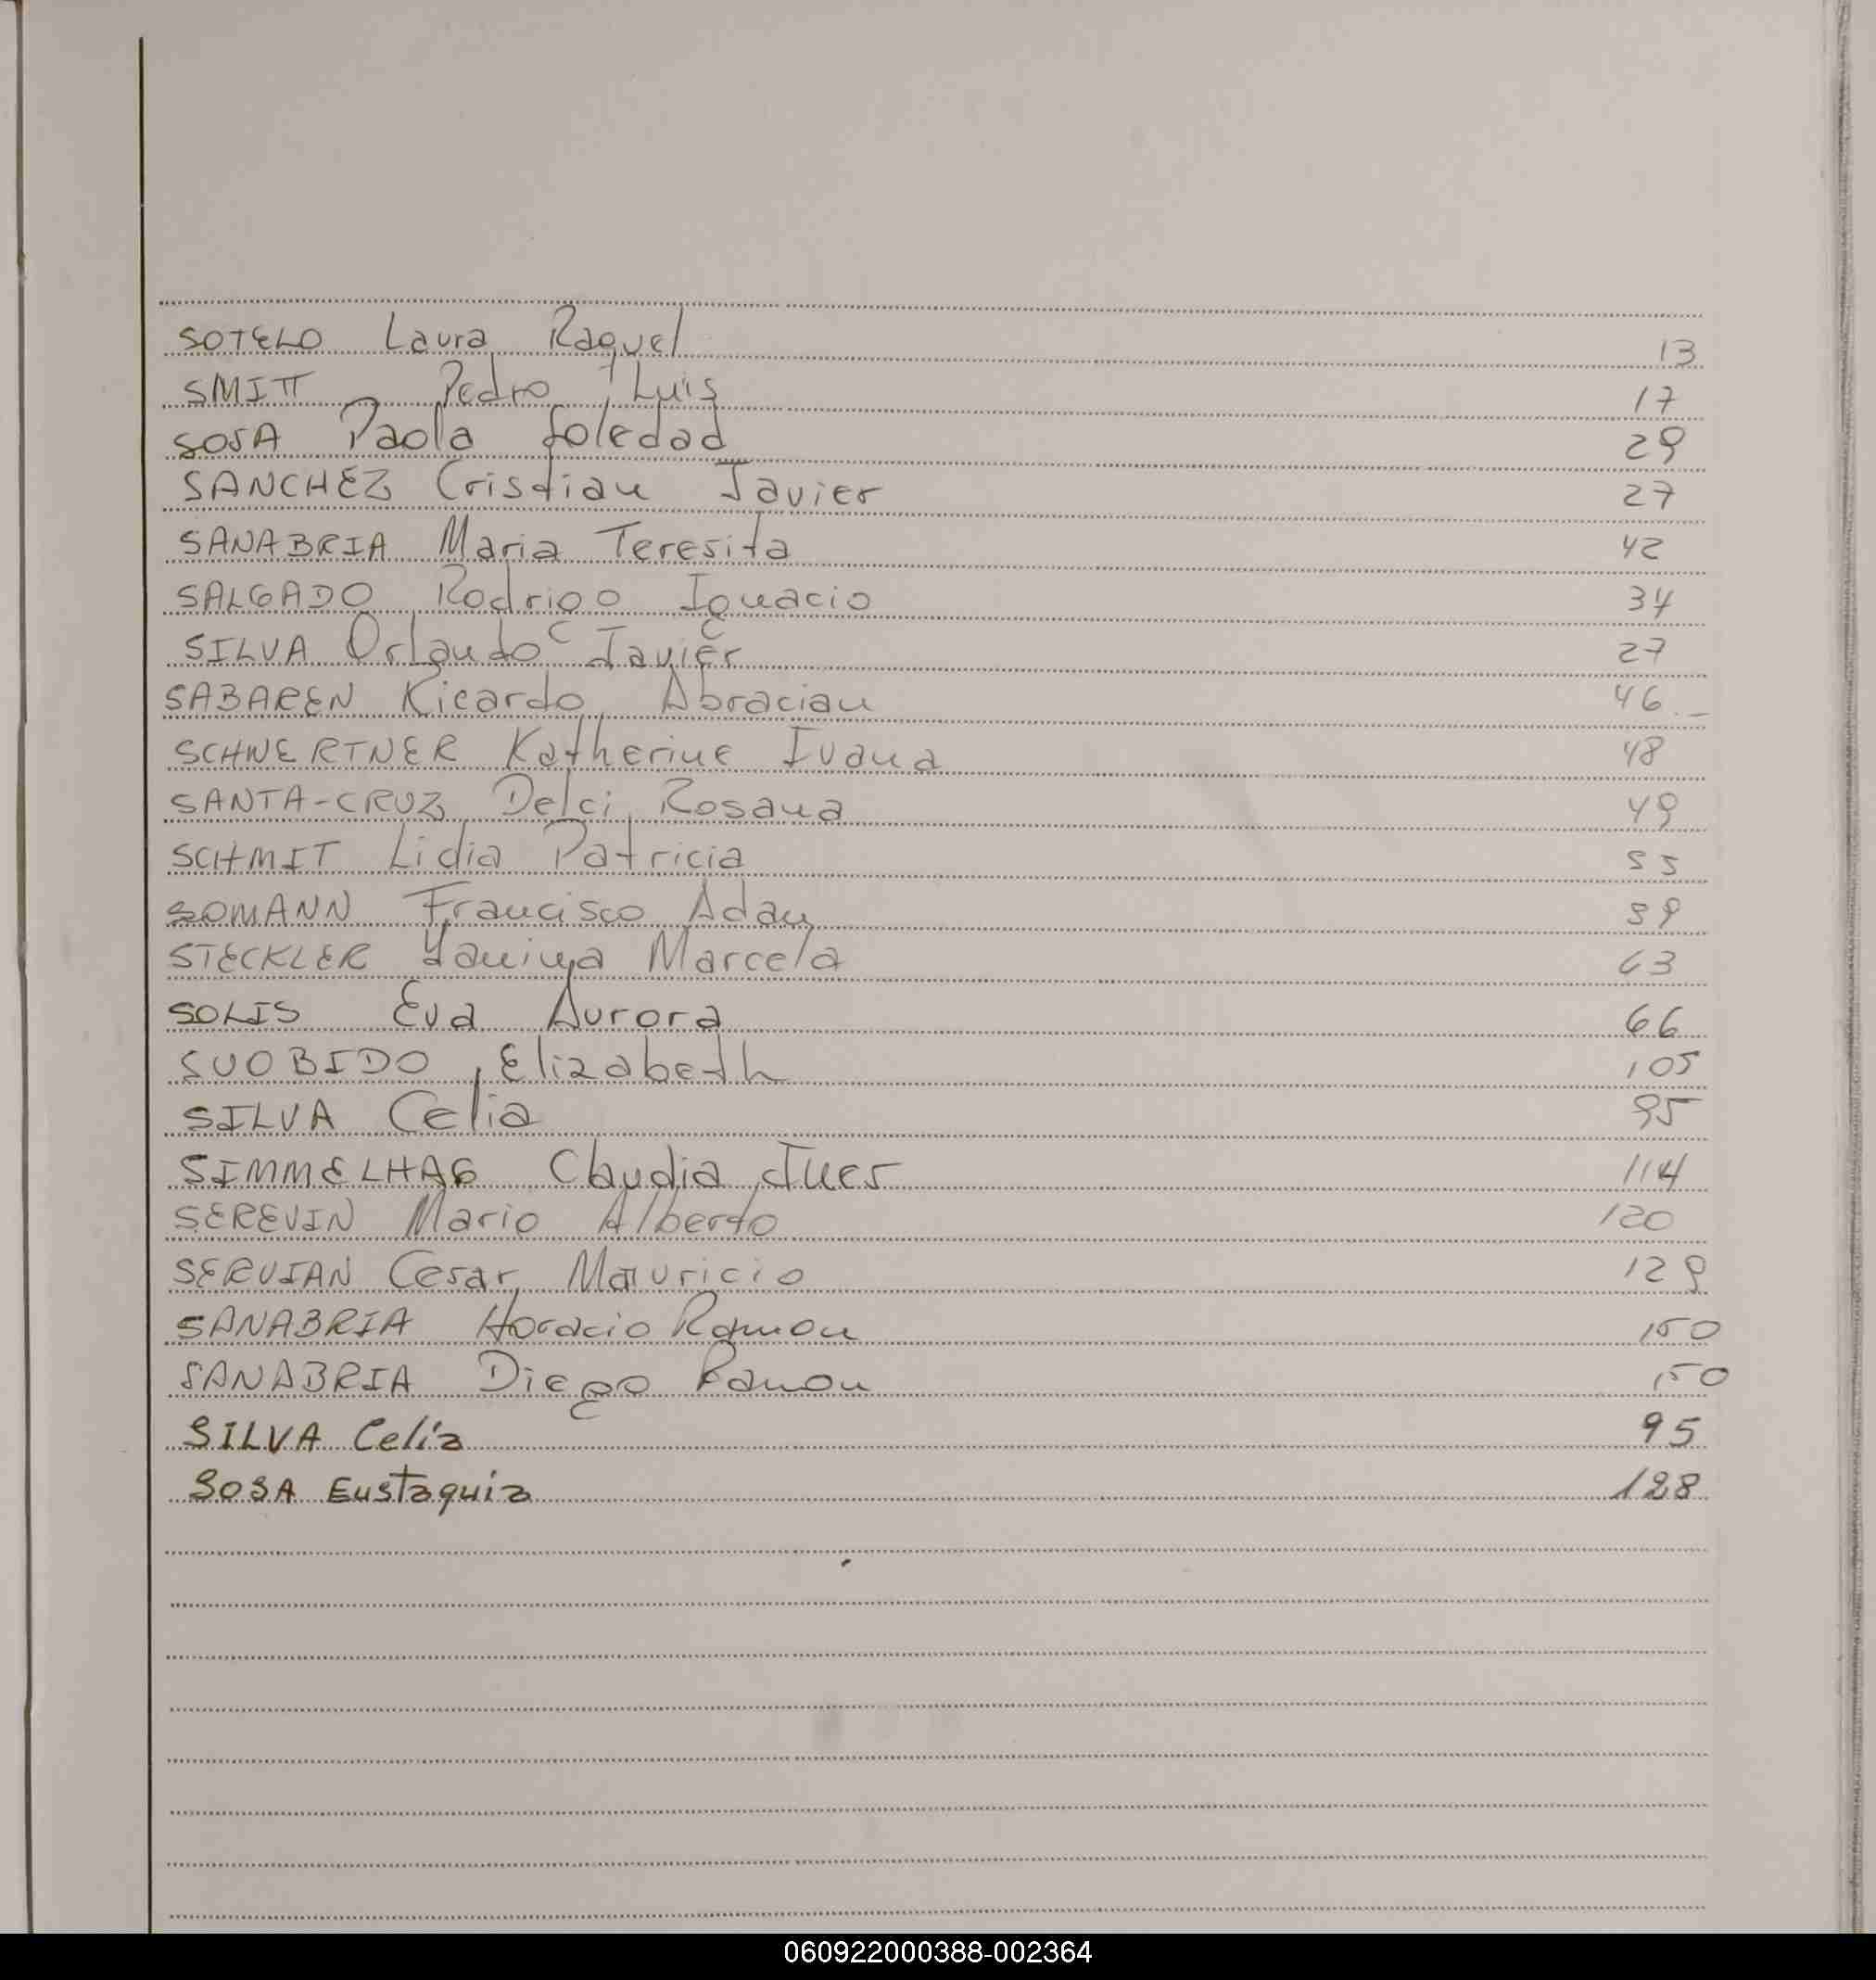 SOTELO Laura Raquel 13
SMITT Pedro Luis 17
SOSA Paola Soledad 29
SANCHEZ Cristian Javier 27
SANABRIA Maria Teresita 42
SALGADO Rodrigo Ignacio 34
SILVA Orlando Javier 27
SABAREN Ricardo 46.-
SCHWERTNER Katherine Ivana 48
SANTA-CRUZ Delci Rosana 49
SCHMIT Lidia Patricia 55
SOMANN Francisco Adan 59
STECKLER Yanina Marcela 63
SOLIS Eva Aurora 66
SUOBIDO Elizabeth 105
SILVA Celia 95
SIMMELHAG Claudia 114
SEREVIN Mario Alberto 120
SERVIAN Cesar Mauricio 129
SANABRIA Horacio Ramon 150
SANABRIA Diego Ramon 150
SILVA Celia 95
SOSA Eustaquia 128
060922000388-002364